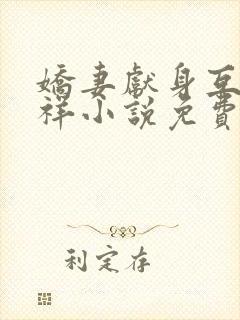 嬌妻獻身互
祥小說免費
利定存